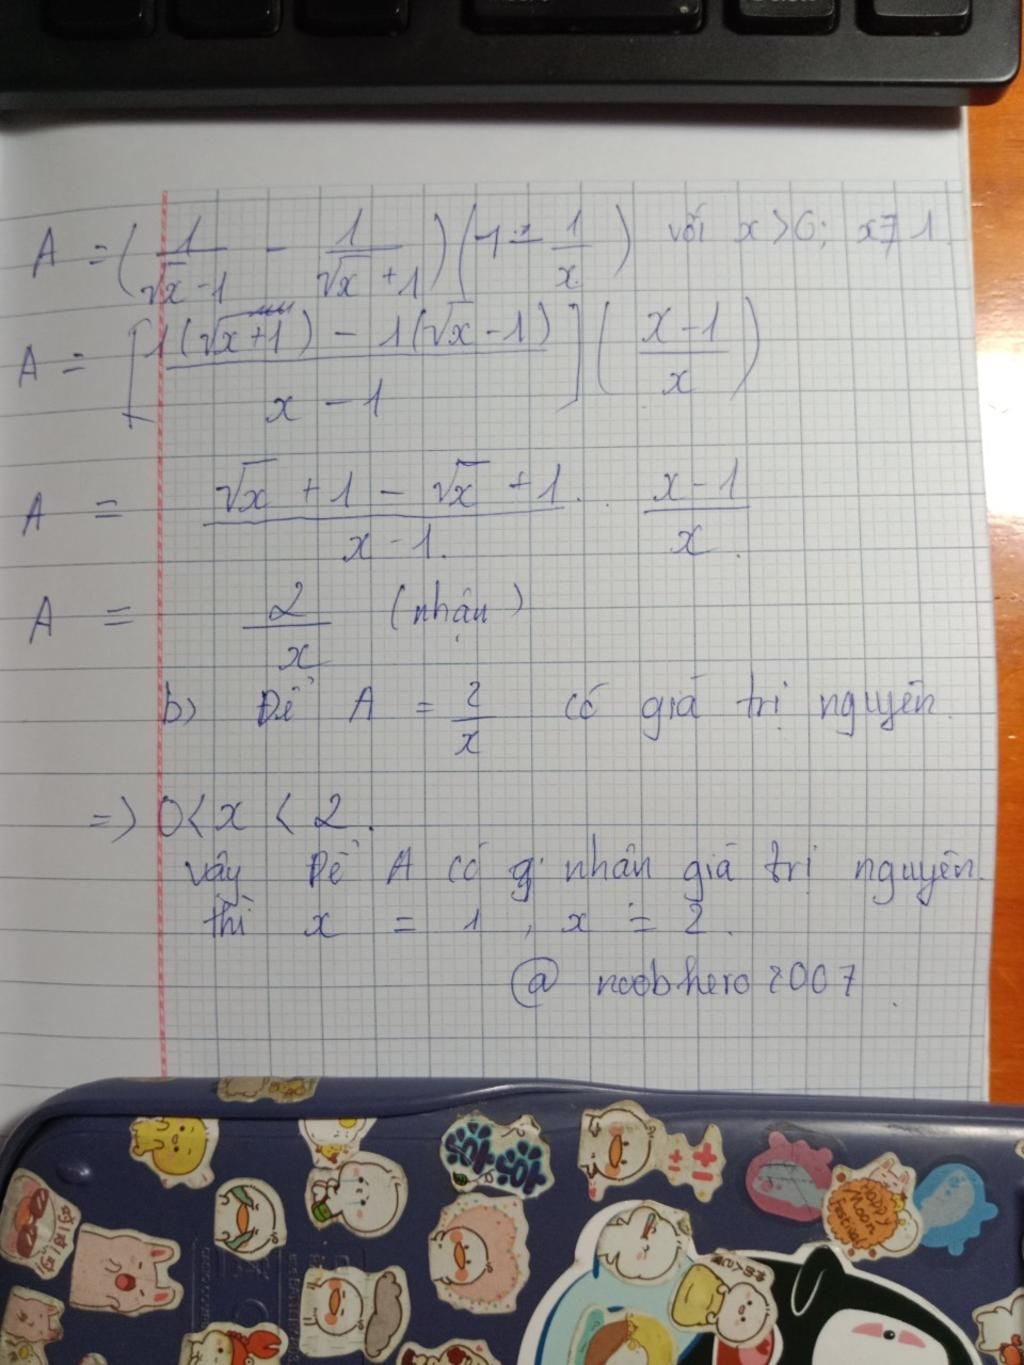 A = (1/(√x - 1) - 1/(√x + 1)) (1 - 1/x) với x > 0; x ≠ 1
A = [(1(√x+1) - 1(√x - 1))/(x - 1)] ((x - 1)/x)
A = (√x + 1 - √x + 1)/(x - 1) . (x - 1)/x
A = 2/x (nhận)
b) Để A = 2/x có giá trị nguyên
=> 0 < x < 2.
vậy Để A có nhân giá trị nguyên
thì x = 1, x = 2.
@ noobhero2007
Happy
Moon
Festival